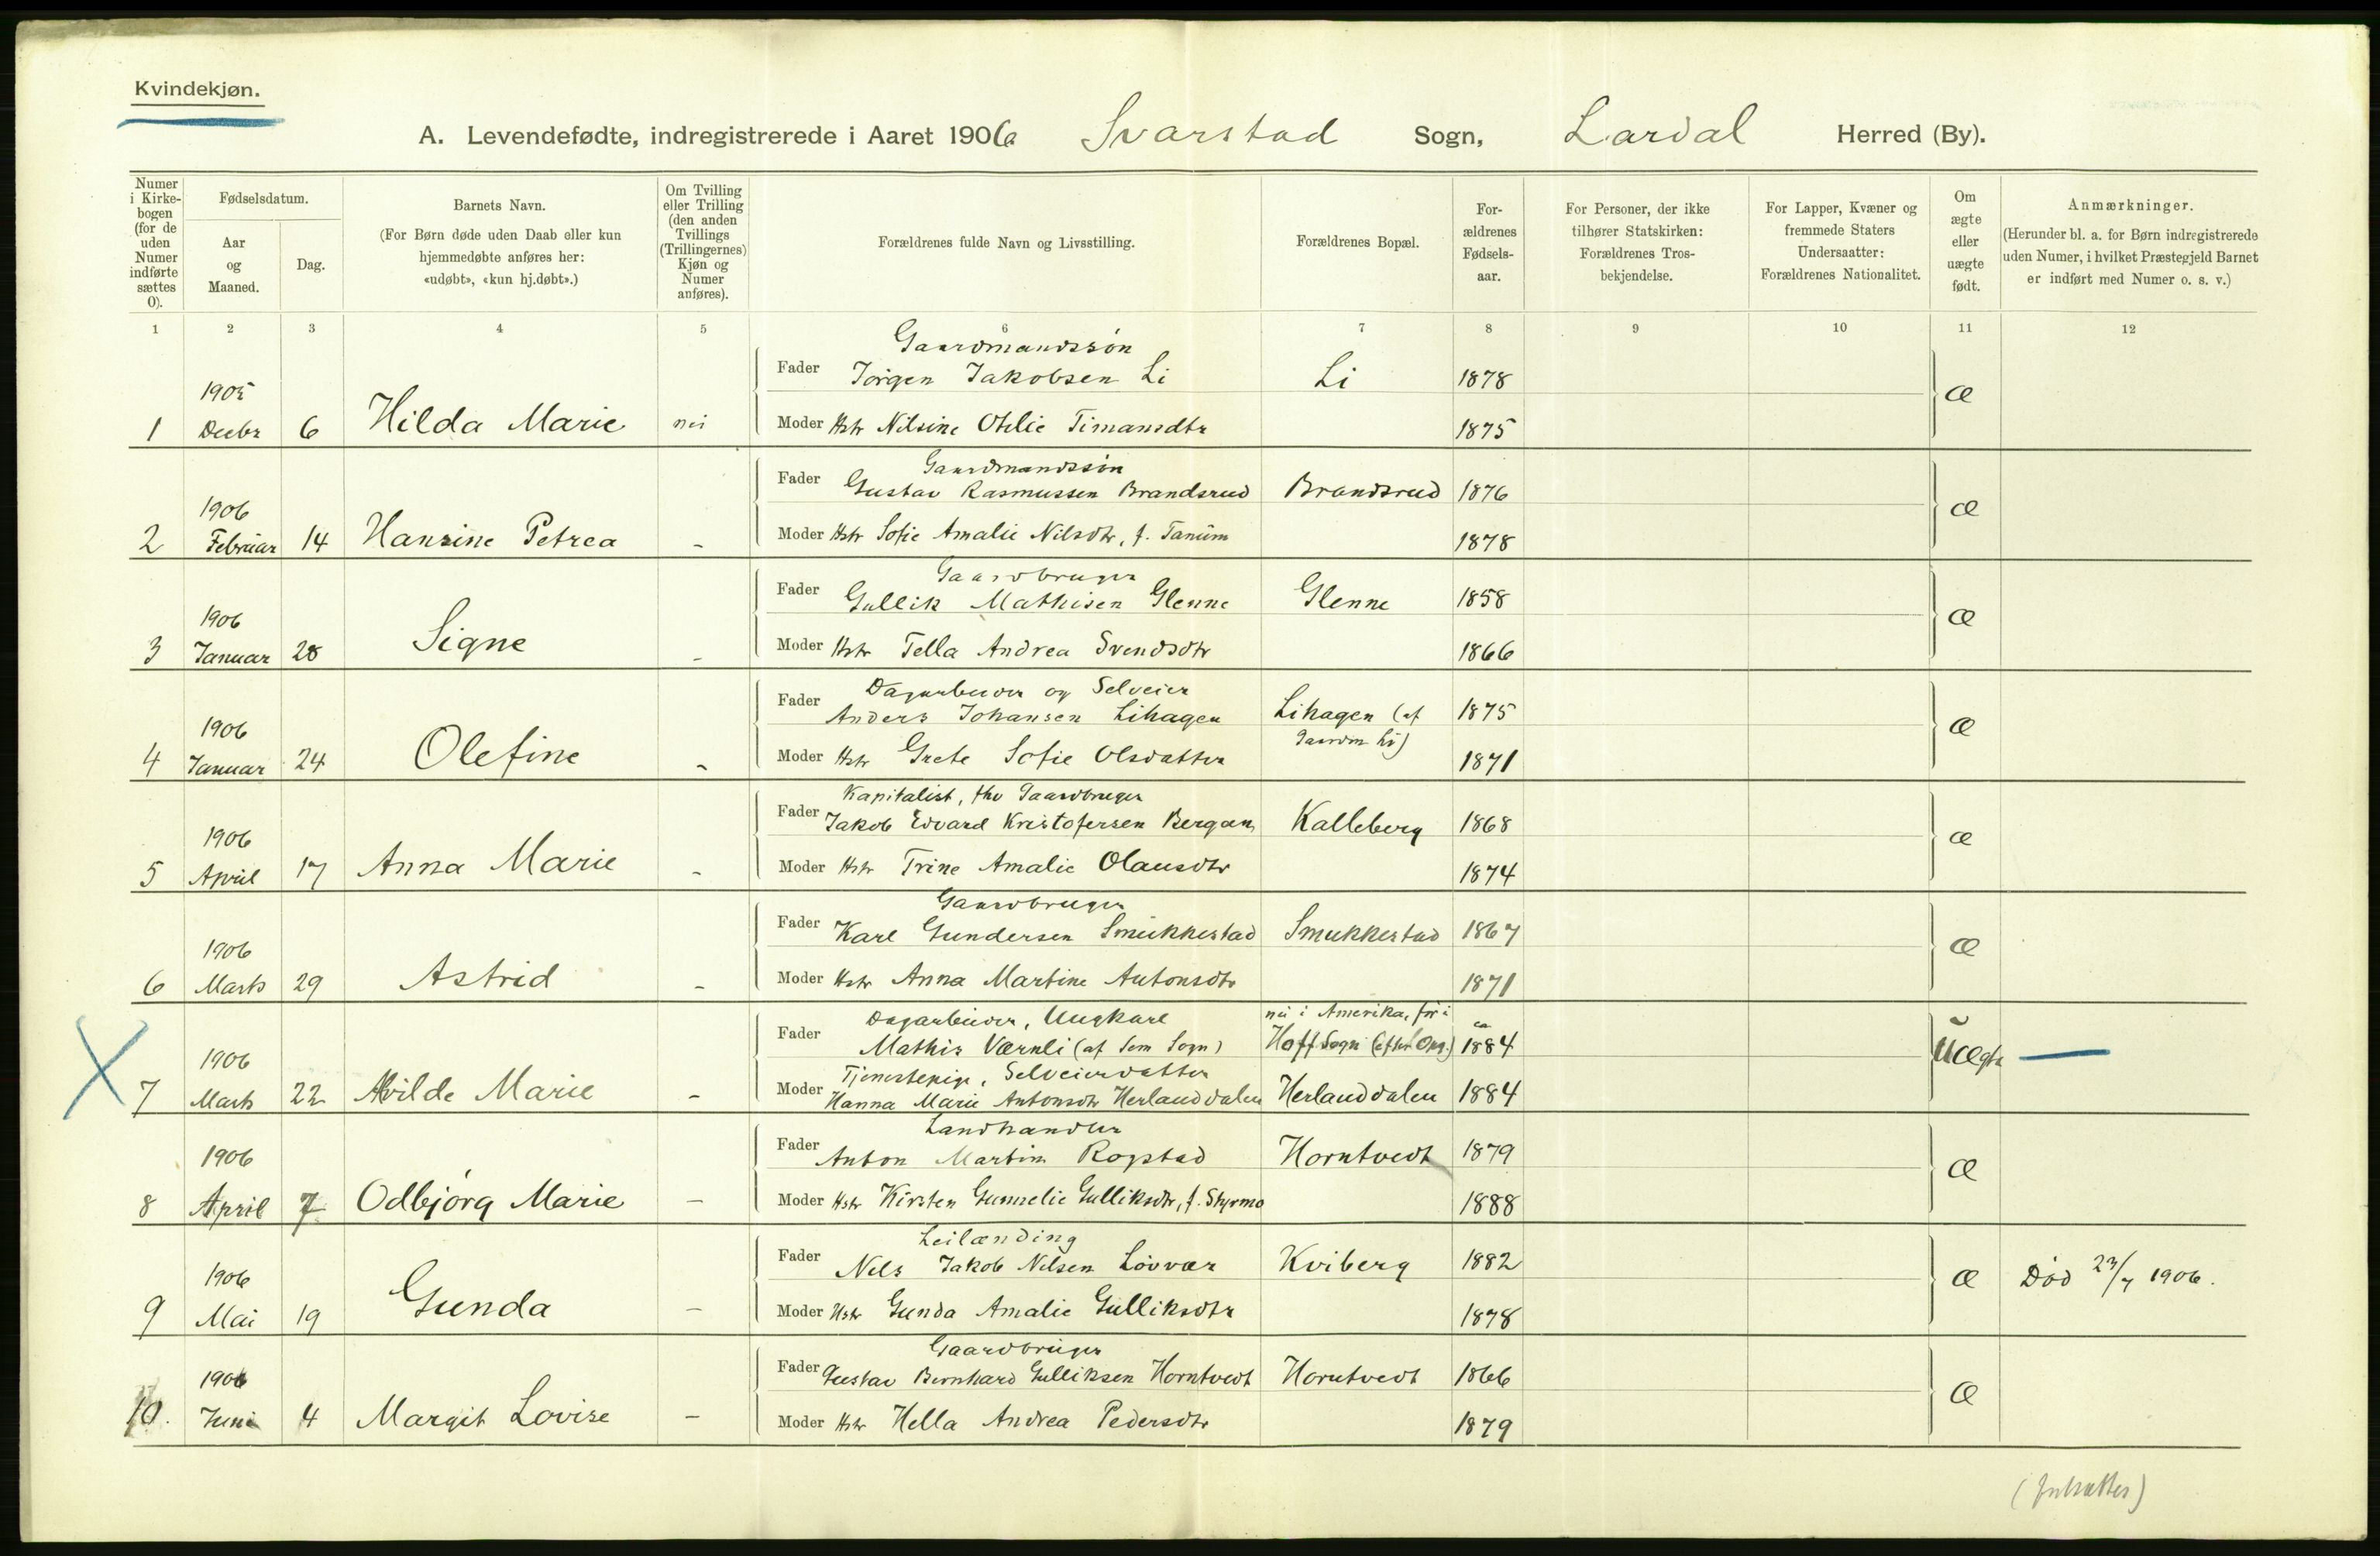 Kvindekjøn.
A. Levendefødte, indregistrerede i Aaret 1906 Svarstad Sogn, Lardal Herred (By).
Numer i Kirkebogen (for de uden Numer indførte sættes 0).
Fødselsdatum.
Aar og Maaned.
Dag.
Barnets Navn.
(For Børn døde uden Daab eller kun hjemmedøbte anføres her: «udøbt», «kun hj.døbt».)
Om Tvilling eller Trilling (den anden Tvillings (Trillingernes) Kjøn og Numer anføres).
Forældrenes fulde Navn og Livsstilling.
Forældrenes Bopæl.
Forældrenes Fødselsaar.
For Personer, der ikke tilhører Statskirken: Forældrenes Trosbekjendelse.
For Lapper, Kvæner og fremmede Staters Undersaatter: Forældrenes Nationalitet.
Om ægte eller uægte født.
Anmærkninger.
(Herunder bl. a. for Børn indregistrerede uden Numer, i hvilket Præstegjeld Barnet er indført med Numer o. s. v.)
1 2 3 4 5 6 7 8 9 10 11 12
Gaardmandssøn
Fader Jörgen Jakobsen Li Li 1878
1905 æ
1 Decbr 6 Hilda Marie nei Moder Hstr Nilsine Otilie Timansdtr 1875
Gaardmandssön
Fader Gustav Rasmussen Brandsrud Brandsrud 1876
1906 æ
2 Februar 14 Hansine Petrea - Moder Hstr Sofie Amalie Nilsdtr, f. Tanum 1878
Gaardbruger
Fader Gullik Mathisen Glenne Glenne 1858
1906 æ
3 Januar 28 Signe - Moder Hstr Tella Andrea Svendsdtr 1866
Dagarbeider og Selveier
Fader Anders Johansen Lihagen Lihagen (af Gaardm Li) 1875
1906 æ
4 Januar 24 Olefine - Moder Hstr Grete Sofie Olsdatter 1871
Kapitalist, fhv Gaardbruger
Fader Jakob Edvard Kristofersen Bergan Kalleberg 1868
1906 æ
5 April 17 Anna Marie - Moder Hstr Trine Amalie Olausdtr 1874
Gaardbruger
Fader Karl Gundersen Smukkestad Smukkestad 1867
1906 æ
6 Marts 29 Astrid - Moder Hstr Anna Martine Antonsdtr 1871
Dagarbeider, Ungkarl nu i Amerika, för i
Fader Mathis Værnli (af Sem Sogn) Hoff Sogn (efter Opg.) ca 1884
1906 Uægte —
Tjenestepige, Selveierdatter
7 Marts 22 Alvilde Marie - Moder Hanna Marie Antonsdtr Herlanddalen Herlanddalen 1884
Landhandler
Fader Anton Martin Rogstad Horntvedt 1879
1906 æ
8 April 7 Odbjörg Marie - Moder Hstr Kirsten Gunnelie Gulliksdtr, f. Styrmo 1888
Leilænding
Fader Nils Jakob Nilsen Lövvar Kviberg 1882
1906 æ Död 23/7 1906.
9 Mai 19 Gunda - Moder Hstr Gunda Amalie Gulliksdtr 1878
Gaardbruger
Fader Gustav Bernhard Gulliksen Horntvedt Horntvedt 1866
1906 æ
10. Juni 4 Margit Lovise - Moder Hstr Hella Andrea Pedersdtr 1879